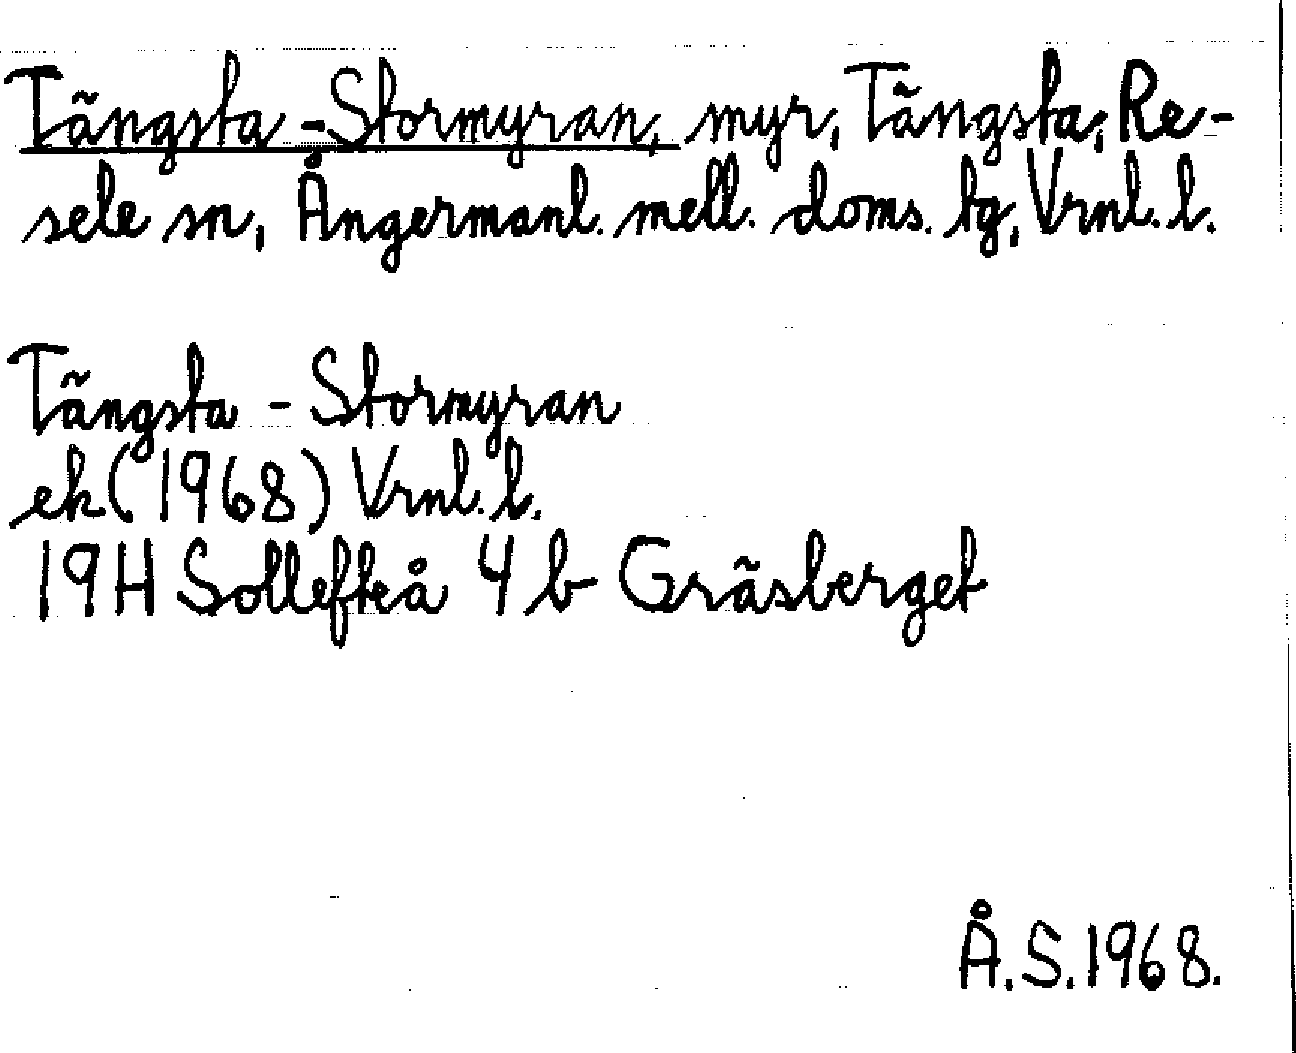 Tängsta-Stormyran, myr, Tängsta, Re-
sele sn, Ångermanl. mell. doms. tg, Vrnl. l.
Tängsta - Stormyran
ek (1968) Vrnl. l.
19H Sollefteå 4 b Gräsberget
Å.S. 1968.